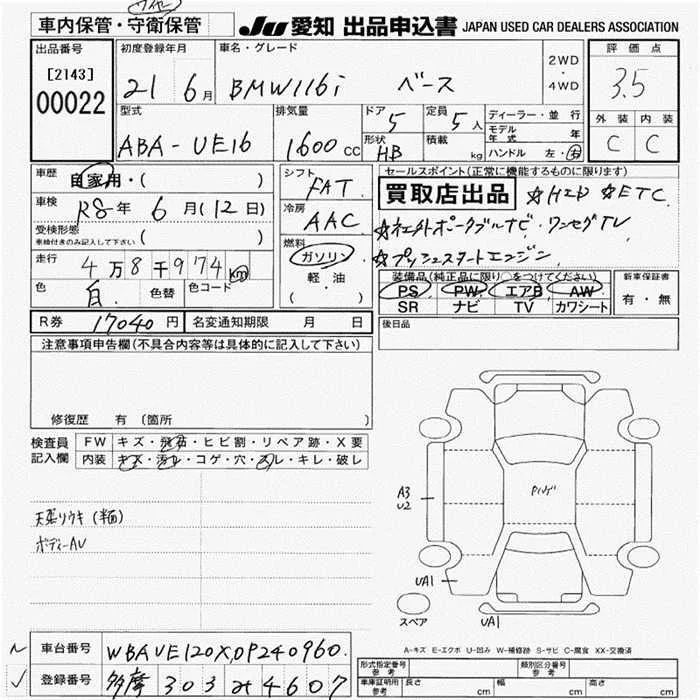 車内保管・守衛保管 JU 愛知 出品申込書 JAPAN USED CAR DEALERS ASSOCIATION
出品番号 初度登録年月 車名・グレード 2WD・4WD 評価点
[2143] 00022 21 6月 BMW116i ベース 3.5
型式 排気量 ドア 5 定員 5人 ディーラー・並行 外装 内装
ABA-UE16 1600cc 形状 HB 積載 kg モデル年式 年 C C
ハンドル 左・右
車歴 自家用・( ) シフト FAT セールスポイント(正常に機能するものに限ります)
車検 R8年 6月(12日) 冷房 AAC 買取店出品 ☆HID ☆ETC
受検形態 車検付きのみ記入して下さい ( ) 燃料 ☆社外ポータブルナビ・ワンセグTV
走行 4万8千974km ガソリン ☆プッシュスタートエンジン
色 白 色替 色コード 軽・油 ( )
装備品(純正品に限り○をつけてください) 新車保証書
PS PW エアB AW 有・無
SR ナビ TV カワシート
R券 17040円 名変通知期限 月 日 後日品
注意事項申告欄(不具合内容等は具体的に記入して下さい)
修復歴 有 (箇所 )
検査員記入欄 FW キズ・飛石・ヒビ割・リペア跡・X要
内装 キズ・汚れ・コゲ・穴・スレ・キレ・破レ
ボディーAV
A3
U2
UA1
スペア UA1
A-キズ E-エクボ U-凹み W-補修跡 S-サビ C-腐食 XX-交換済
車台番号 WBAVE120X0P240960.
登録番号 多摩 303 4607
形式指定番号 参考 類別区分番号 参考
車庫証明用 参考 長さ cm 幅 cm 高さ cm